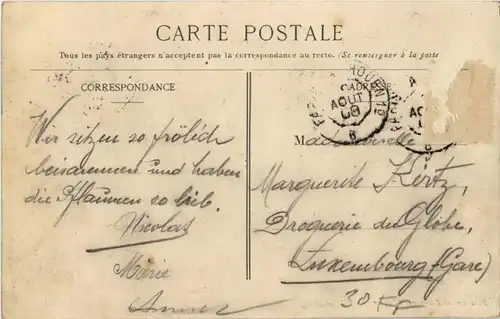 CARTE POSTALE
Tous les pays étrangers n'acceptent pas la correspondance au recto. (Se renseigner à la poste
CORRESPONDANCE
AOUT
08
Wir sitzen so frölich
beisammen und haben
die Pflaumen so lieb.
Nicolas
Marie
Mademoiselle
Marguerite Kertz,
Droguerie du Globe,
Luxembourg (Gare)